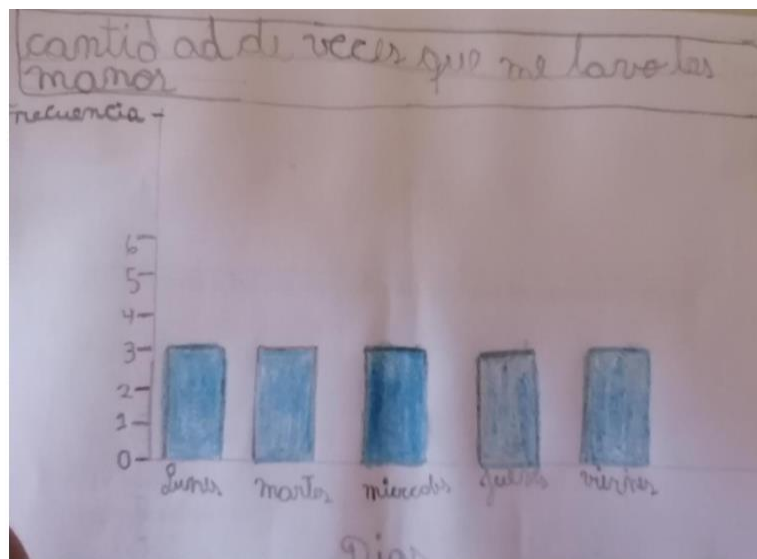 cantidad de veces que me lavo las
manos
Frecuencia
6
5
4
3
2
1
0
Lunes martes miercoles jueves viernes
Dias